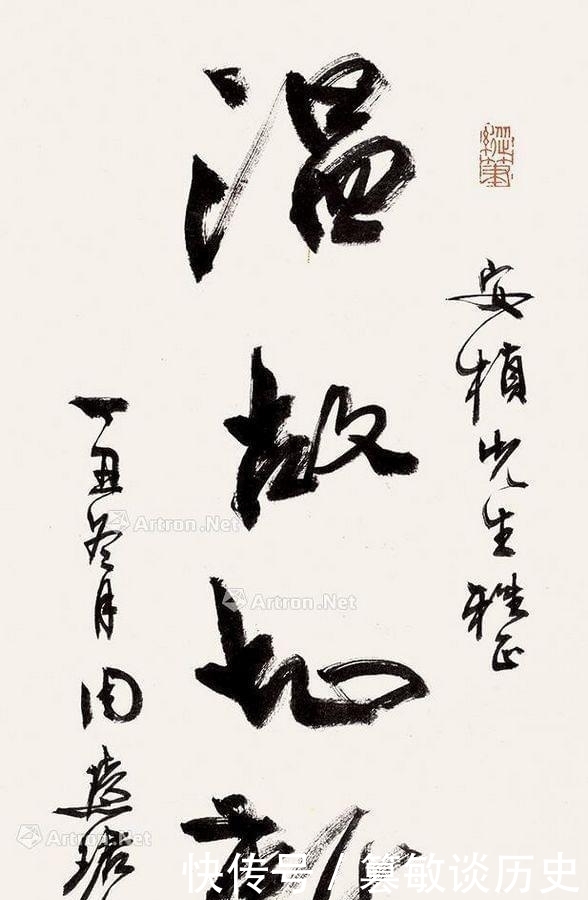 安楨先生雅正
温故知新
丁丑冬月周慧珺
Artron.Net
Artron.Net
Artron.Net
快传号 / 篡敏谈历史